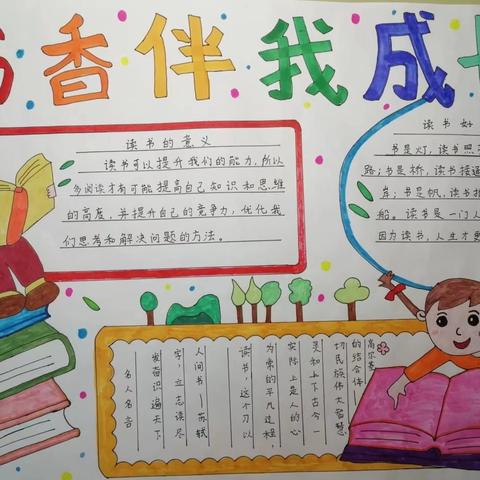 香伴我成
读书的意义
读书可以提升我们的能力，所以
多阅读才有可能提高自己知识和思维
的高度，并提升自己的竞争力，优化我
们思考和解决问题的方法。
读书好
书是灯，读书照
路；书是桥，读书接通
岸；书是帆，读书推
船。读书是一门人
因为读书，人生才更
名人名言
发奋识遍天下
字，立志读尽
人间书—苏轼
读书，这个习以
为常的平凡过程，
实际上是人的心
灵和上下古今一
切民族伟大智慧
的结合体——
高尔基